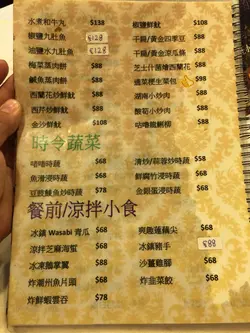 水煮和牛丸 $138
椒鹽九肚魚 $128
油鹽水九肚魚 $128
梅菜蒸肉餅 $88
鹹魚蒸肉餅 $88
西蘭花炒鮮魷 $88
西芹炒鮮魷 $88
金沙鮮魷 $108
椒鹽鮮魷 $108
干扁/黃金四季豆 $88
干扁/黃金涼瓜條 $88
芝士汁 西蘭花 $88
生菜包 $98
湖南小炒肉 $88
酸筍小炒肉 $88
咕嚕龍脷柳 $88
時令蔬菜
咕嚕時蔬 $68
魚湯浸時蔬 $68
豆豉鯪魚炒時蔬 $78
清炒/蒜蓉炒時蔬 $58
鮮腐竹浸時蔬 $68
金銀蛋浸時蔬 $68
餐前/涼拌小食
冰鎮 Wasabi 青瓜 $68
涼拌芝麻海蜇 $68
冰凍鵝掌翼 $88
炸潮州魚片頭 $68
炸鮮蝦雲吞 $78
爽脆蓮藕尖 $68
冰鎮豬手 $88
沙薑雞腳 $68
炸韭菜餃 $68